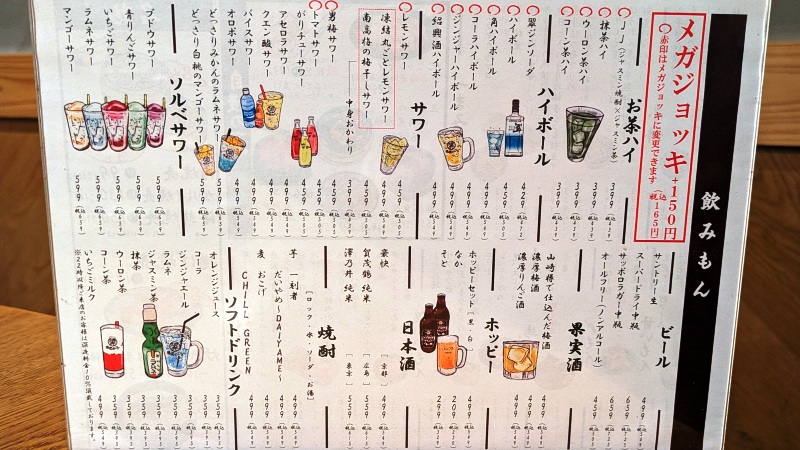 飲みもん
メガジョッキ+150円
(税込165円)
赤印はメガジョッキに変更できます
お茶ハイ
JJ(ジャスミン焼酎×ジャスミン茶)
抹茶ハイ
ウーロン茶ハイ
コーン茶ハイ
399
399
399
399
ハイボール
翠ジンソーダ
ハイボール
角ハイボール
コーラハイボール
ジンジャーハイボール
紹興酒ハイボール
429
459
499
499
499
サワー
レモンサワー
凍結丸ごとレモンサワー
南高梅の梅干しサワー
中身おかわり
男梅サワー
トマトサワー
がりチューサワー
アセロラサワー
クエン酸サワー
バイスサワー
オロポサワー
どっさりみかんのラムネサワー
どっさり白桃のマンゴーサワー
459
499
499
399
499
499
499
499
499
599
599
ソルベサワー
ブドウサワー
青りんごサワー
いちごサワー
ラムネサワー
マンゴーサワー
599
599
599
599
599
ビール
サントリー生
スーパードライ中瓶
サッポロラガー中瓶
オールフリー(ノンアルコール)
499
659
659
459
果実酒
山崎樽で仕込んだ梅酒
濃厚梅酒
濃厚りんご酒
499
499
499
ホッピー
ホッピーセット[黒・白]
なか
そと
499
209
299
日本酒
豪快
[京都]
賀茂鶴 純米
[広島]
澤乃井 純米
[東京]
499
559
559
焼酎
[ロック・水・ソーダ・お湯]
芋 一刻者
だいやめ〜DAIYAME〜
麦 おこげ
CHILL GREEN
499
499
499
499
ソフトドリンク
オレンジジュース
コーラ
ジンジャエール
ラムネ
ジャスミン茶
抹茶
ウーロン茶
コーン茶
いちごミルク
359
359
359
359
359
359
359
499
※22時以降ご来店のお客様は深夜料金10%頂戴しております。